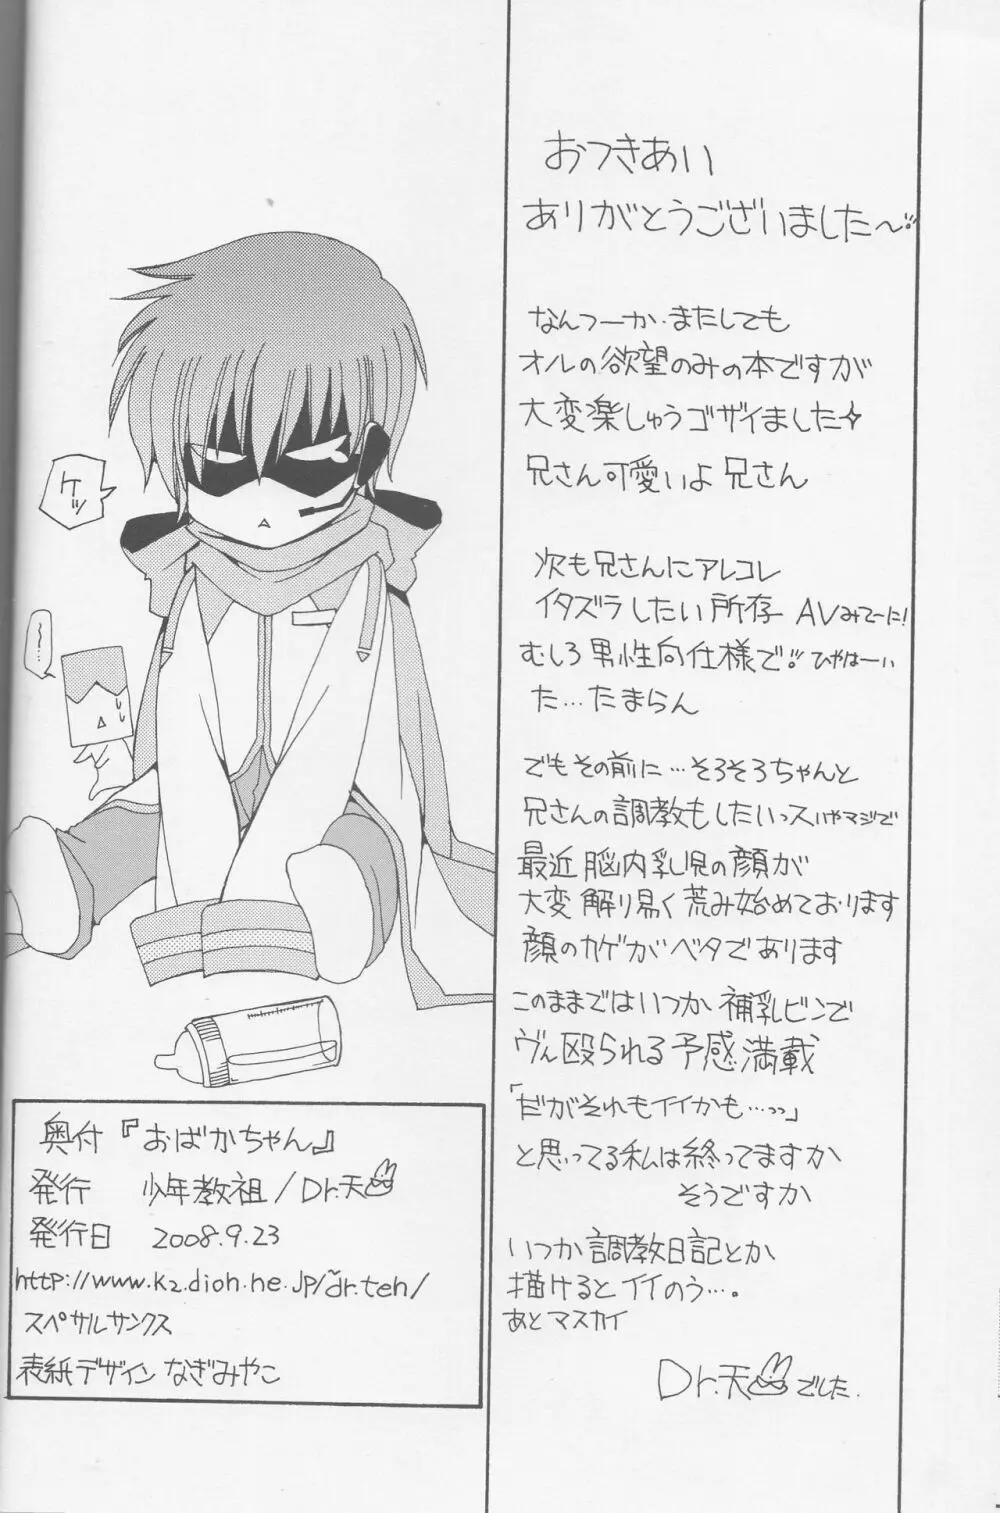 おつきあい
ありがとうございました〜
なんつーか・またしても
オルの欲望のみの本ですが
大変楽しゅうゴザイました☆
兄さん可愛いよ兄さん
次も兄さんにアレコレ
イタズラしたい所存 AVみてーに!
むしろ男性向仕様で!! ひゃはーい
た…たまらん
でもその前に…そろそろちゃんと
兄さんの調教もしたいっス いやマジで
最近脳内乳児の顔が
大変解り易く荒み始めております
顔のカゲがベタであります
このままではいつか補乳ビンで
ヴん殴られる予感満載
「だがそれもイイかも…っっ」
と思ってる私は終ってますか
そうですか
いつか調教日記とか
描けるとイイのう…。
あとマスカイ
Dr.天でした.
ケッ
〜…
奥付『おばかちゃん』
発行 少年教祖/Dr.天
発行日 2008.9.23
http://www.k2.dion.ne.jp/~dr.ten/
スペサルサンクス
表紙デザイン なぎみやこ